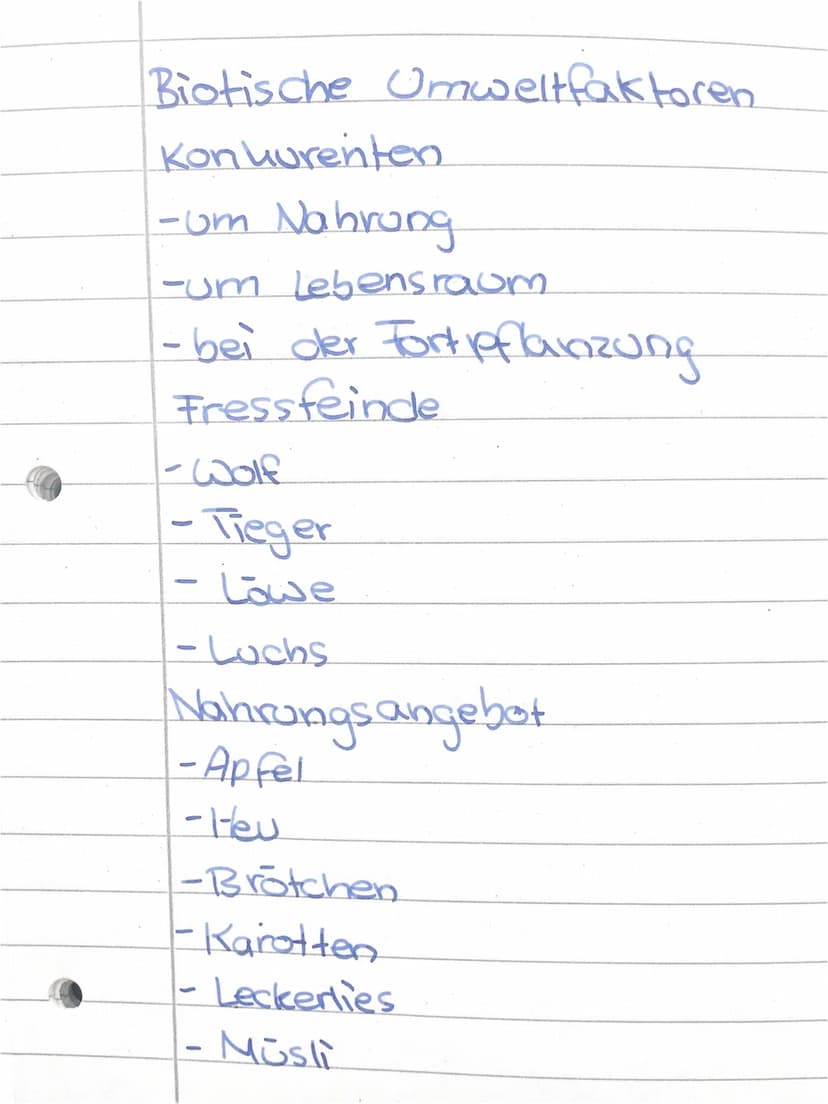 Biotische Umweltfaktoren
Konkurenten
-um Nahrung
-um Lebensraum
- bei der Fortpflanzung
Fressfeinde
- Wolf
- Tieger
- Löwe
- Luchs
Nahrungsangebot
- Apfel
- Heu
- Brötchen
- Karotten
- Leckerlies
- Müsli